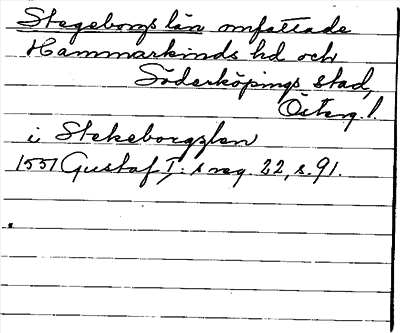 Stegeborgs län omfattade
Hammarkinds hd och
Söderköpings stad,
Österg.!
i Stekeborgzlen
1551 Gustaf I:s reg. 22, s. 91.